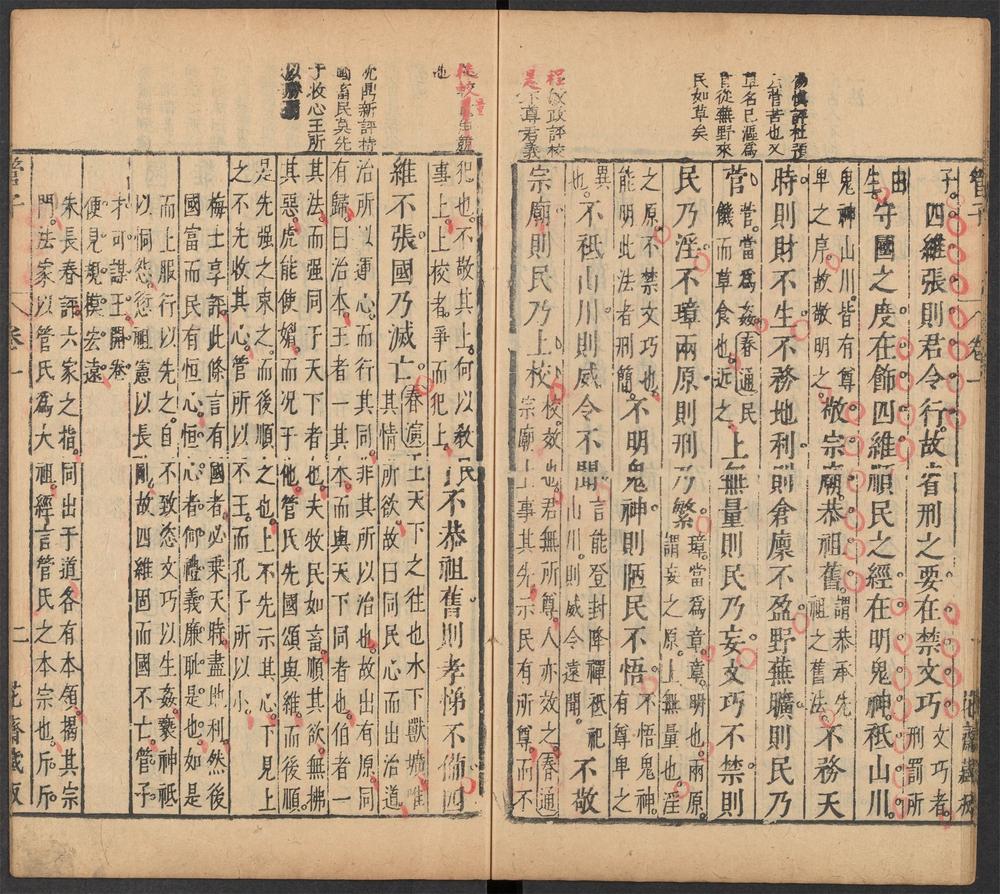 管子 卷一 花齋藏板
四維張則君令行。故省刑之要在禁文巧。文巧者。刑罰所
由生。守國之度在飾四維。順民之經在明鬼神。祇山川。
鬼神山川。皆有尊卑之序。故敬明之。敬宗廟。恭祖舊。謂恭承先祖之舊法。不務天
時。則財不生。不務地利。則倉廩不盈。野蕪曠。則民乃
菅。菅。當爲姦。春通民菅饑而草食也。近之。上無量則民乃妄。文巧不禁。則
民乃淫。不璋兩原。則刑乃繁。璋。當爲章。章。明也。兩原。謂妄之原。上無量也。淫
之原。不禁文巧也。能明此法者。刑簡。不明鬼神。則陋民不悟。不悟鬼神。有尊卑之
異也。不祗山川。則威令不聞。言能登封降禪。祇祀山川。則威令遠聞。不敬
宗廟。則民乃上校。校。效也。君無所尊。人亦效之。春通宗廟上事其先。示民有所尊。而不
易慎評杜預
云菅苦也又
草名已漚爲
菅從蕪野來
民如草矣
程敏政評校
是不尊君義
犯也。不敬其上。何以教民事上。上校者。爭而犯上。不恭祖舊。則孝悌不備。四
維不張。國乃滅亡。春演王天下之往也。水下獸壙。唯其情所欲。故曰同民心而出治道。
治所以運心。而行其同。非其所以治也。故出有原。同
有歸。曰治本。王者一其本。而與天下同者也。伯者一
其法。而强同于天下者也。夫牧民如畜。順其欲。無拂
其惡。虎能使媚。而况于他。管氏先國頌與維。而後順。
是先强之束之。而後順之也。上不先示其心。下見上
之不先收其心。管所以不王。而孔子所以小。
梅士享評此條言有國者。必乘天時。盡地利。然後
國富而民有恒心。恒心者何。禮義廉恥是也。如是
而上服行以先之。自不致恣文巧以生姦。褻神祇
以恫怨。愆祖憲以長亂。故四維固而國不亡。管子
才可謀王。開卷
便見規模宏遠。
朱長春評六家之指。同出于道。各有本領。揭其宗
門。法家以管氏爲大祖。經言管氏之本宗也。斥斥
沈鼎新評持
國畜民莫先
于收心王所
以勝覇
管子 卷一 二 花齋藏板